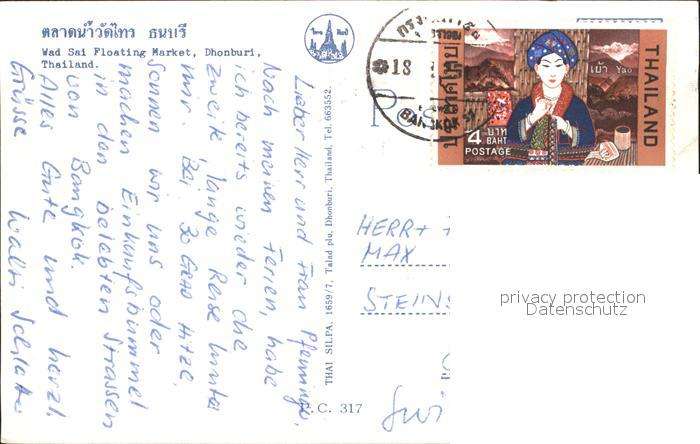 ตลาดน้ำวัดไทร ธนบุรี
Wad Sai Floating Market, Dhonburi,
Thailand.
Lieber Herr und Frau Pfenninger,
Nach meinen Ferien, habe
ich bereits wieder die
zweite lange Reise hinter
mir. Bei 30 Grad Hitze,
sonnen wir uns oder
machen Einkaufsbummel
in den belebten Strassen
von Bangkok.
Alles Gute und herzl.
Grüsse
THAI SILPA. 1659/7, Talad plu, Dhonburi, Thailand. Tel. 663552.
P.C. 317
18
BANGKOK
ประเทศไทย
เย้า Yao
THAILAND
4 บาท
BAHT
POSTAGE
HERR +
MAX
privacy protection
Datenschutz